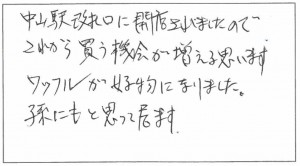 中山駅改札口に開店されましたので
これから買う機会が増える思います
ワッフルが好物になりました。
孫にもと思って居ます